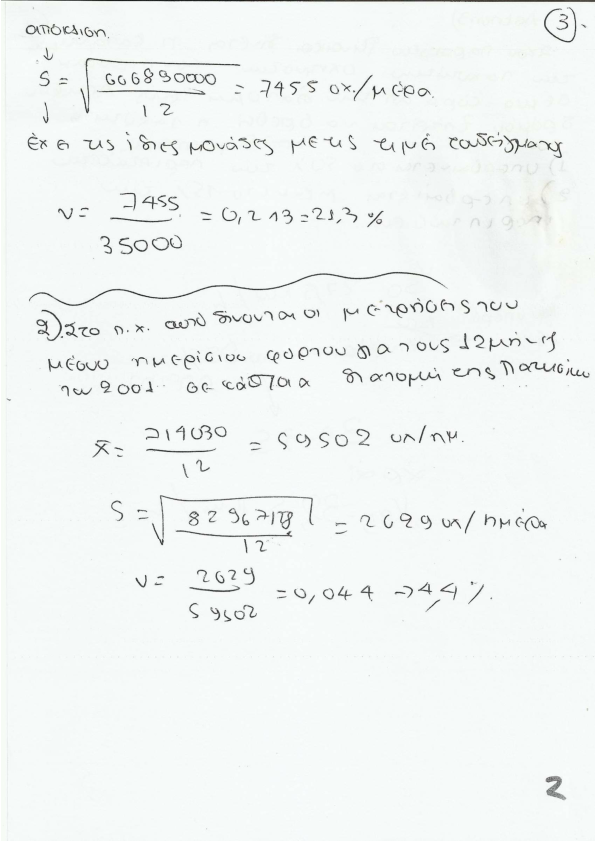 3
απόκλιση
↓
S = √(666890000 / 12) = 7455 οχ./μέρα.
↓
έχει τις ίδιες μονάδες με τις τιμές του δείγματος
ν = 7455 / 35000 = 0,213 = 21,3 %
2) Στο π.χ. αυτό δίνονται οι μετρήσεις του
μέσου ημερίσιου φόρτου για τους 12 μήνες
του 2001 σε κάποια διατομή της Πατησίων
x̄ = 714030 / 12 = 59502 οχ/ημ.
S = √(82967178 / 12) = 2629 οχ/ημέρα
ν = 2629 / 59502 = 0,044 → 4,4 %.
2